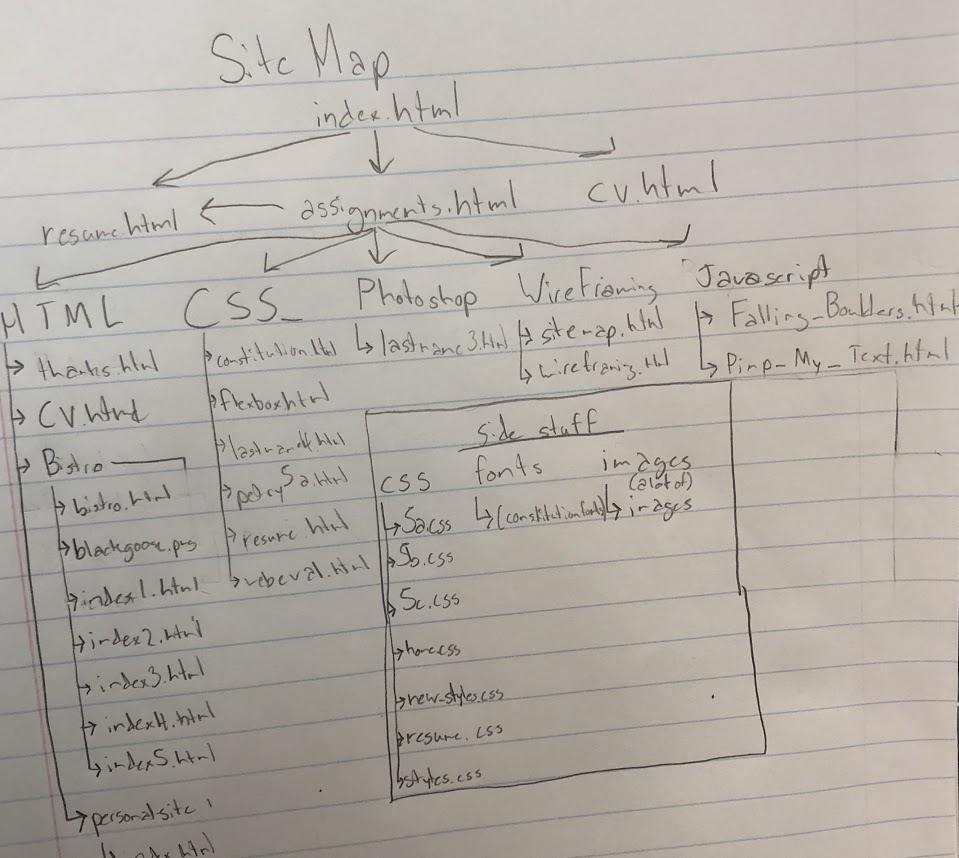 Site Map
index.html
resume.html
assignments.html
cv.html
HTML
thanks.html
CV.html
Bistro
bistro.html
blackgoose.png
index1.html
index2.html
index3.html
index4.html
index5.html
personalsite
CSS
constitution.html
flexbox.html
5a.html
resume.html
webeval.html
Photoshop
WireFraming
sitemap.html
wireframing.html
Javascript
Falling_Boulders.html
Pimp_My_Text.html
side stuff
CSS
5a.css
5b.css
5c.css
home.css
new-styles.css
resume.css
styles.css
fonts
(constitution fonts)
images
(alot of)
images